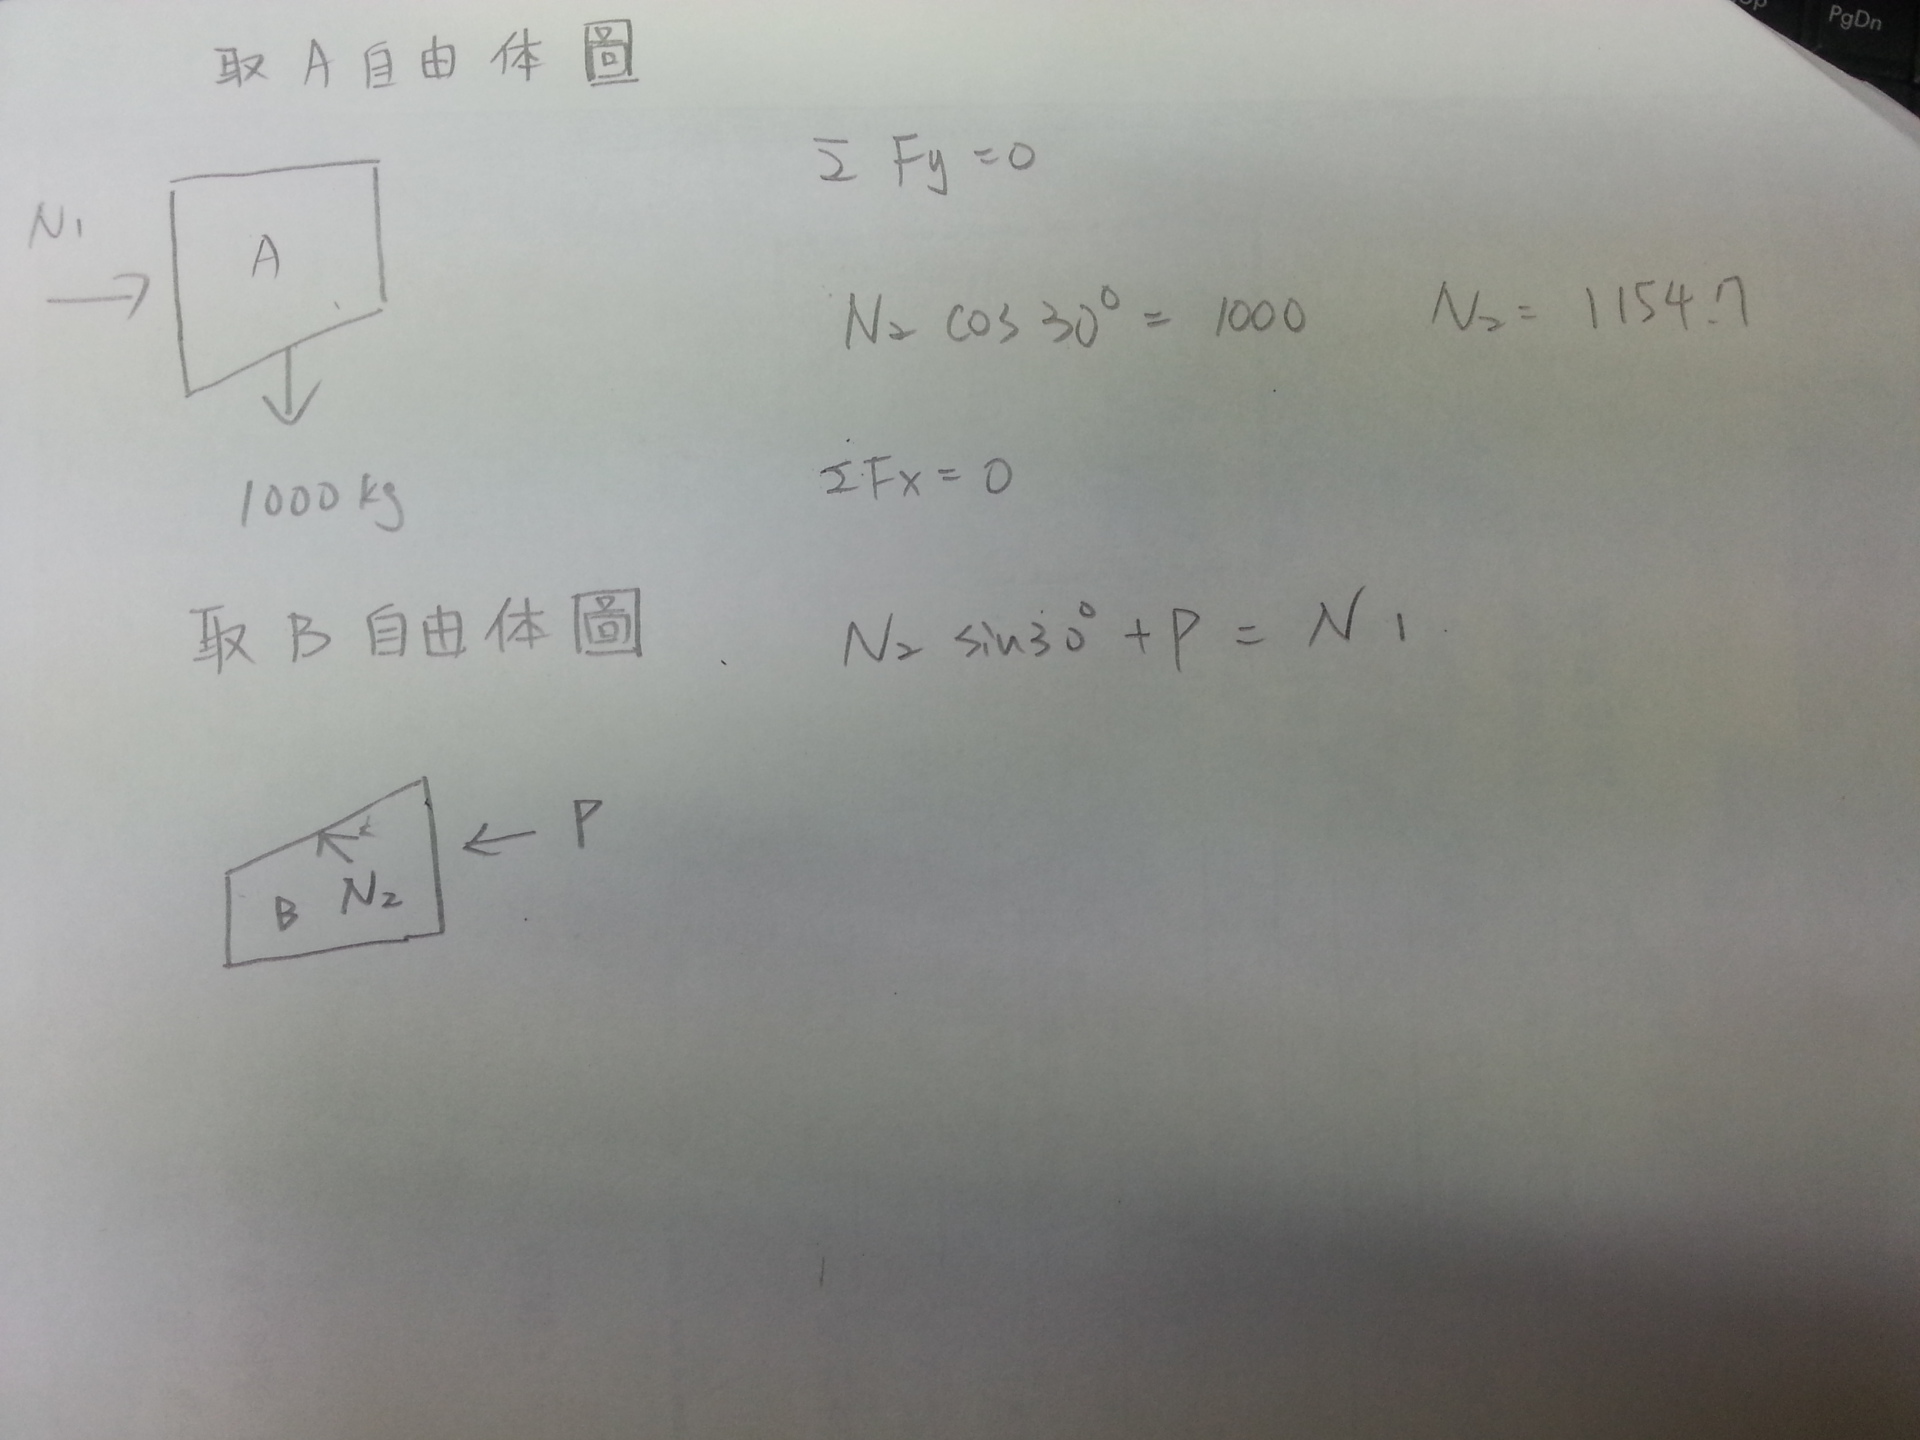 取 A 自由体圖
N1
A
1000 kg
Σ Fy = 0
N2 cos 30° = 1000 N2 = 1154.7
ΣFx = 0
N2 sin30° + P = N1
取 B 自由体圖
P
B N2
PgDn